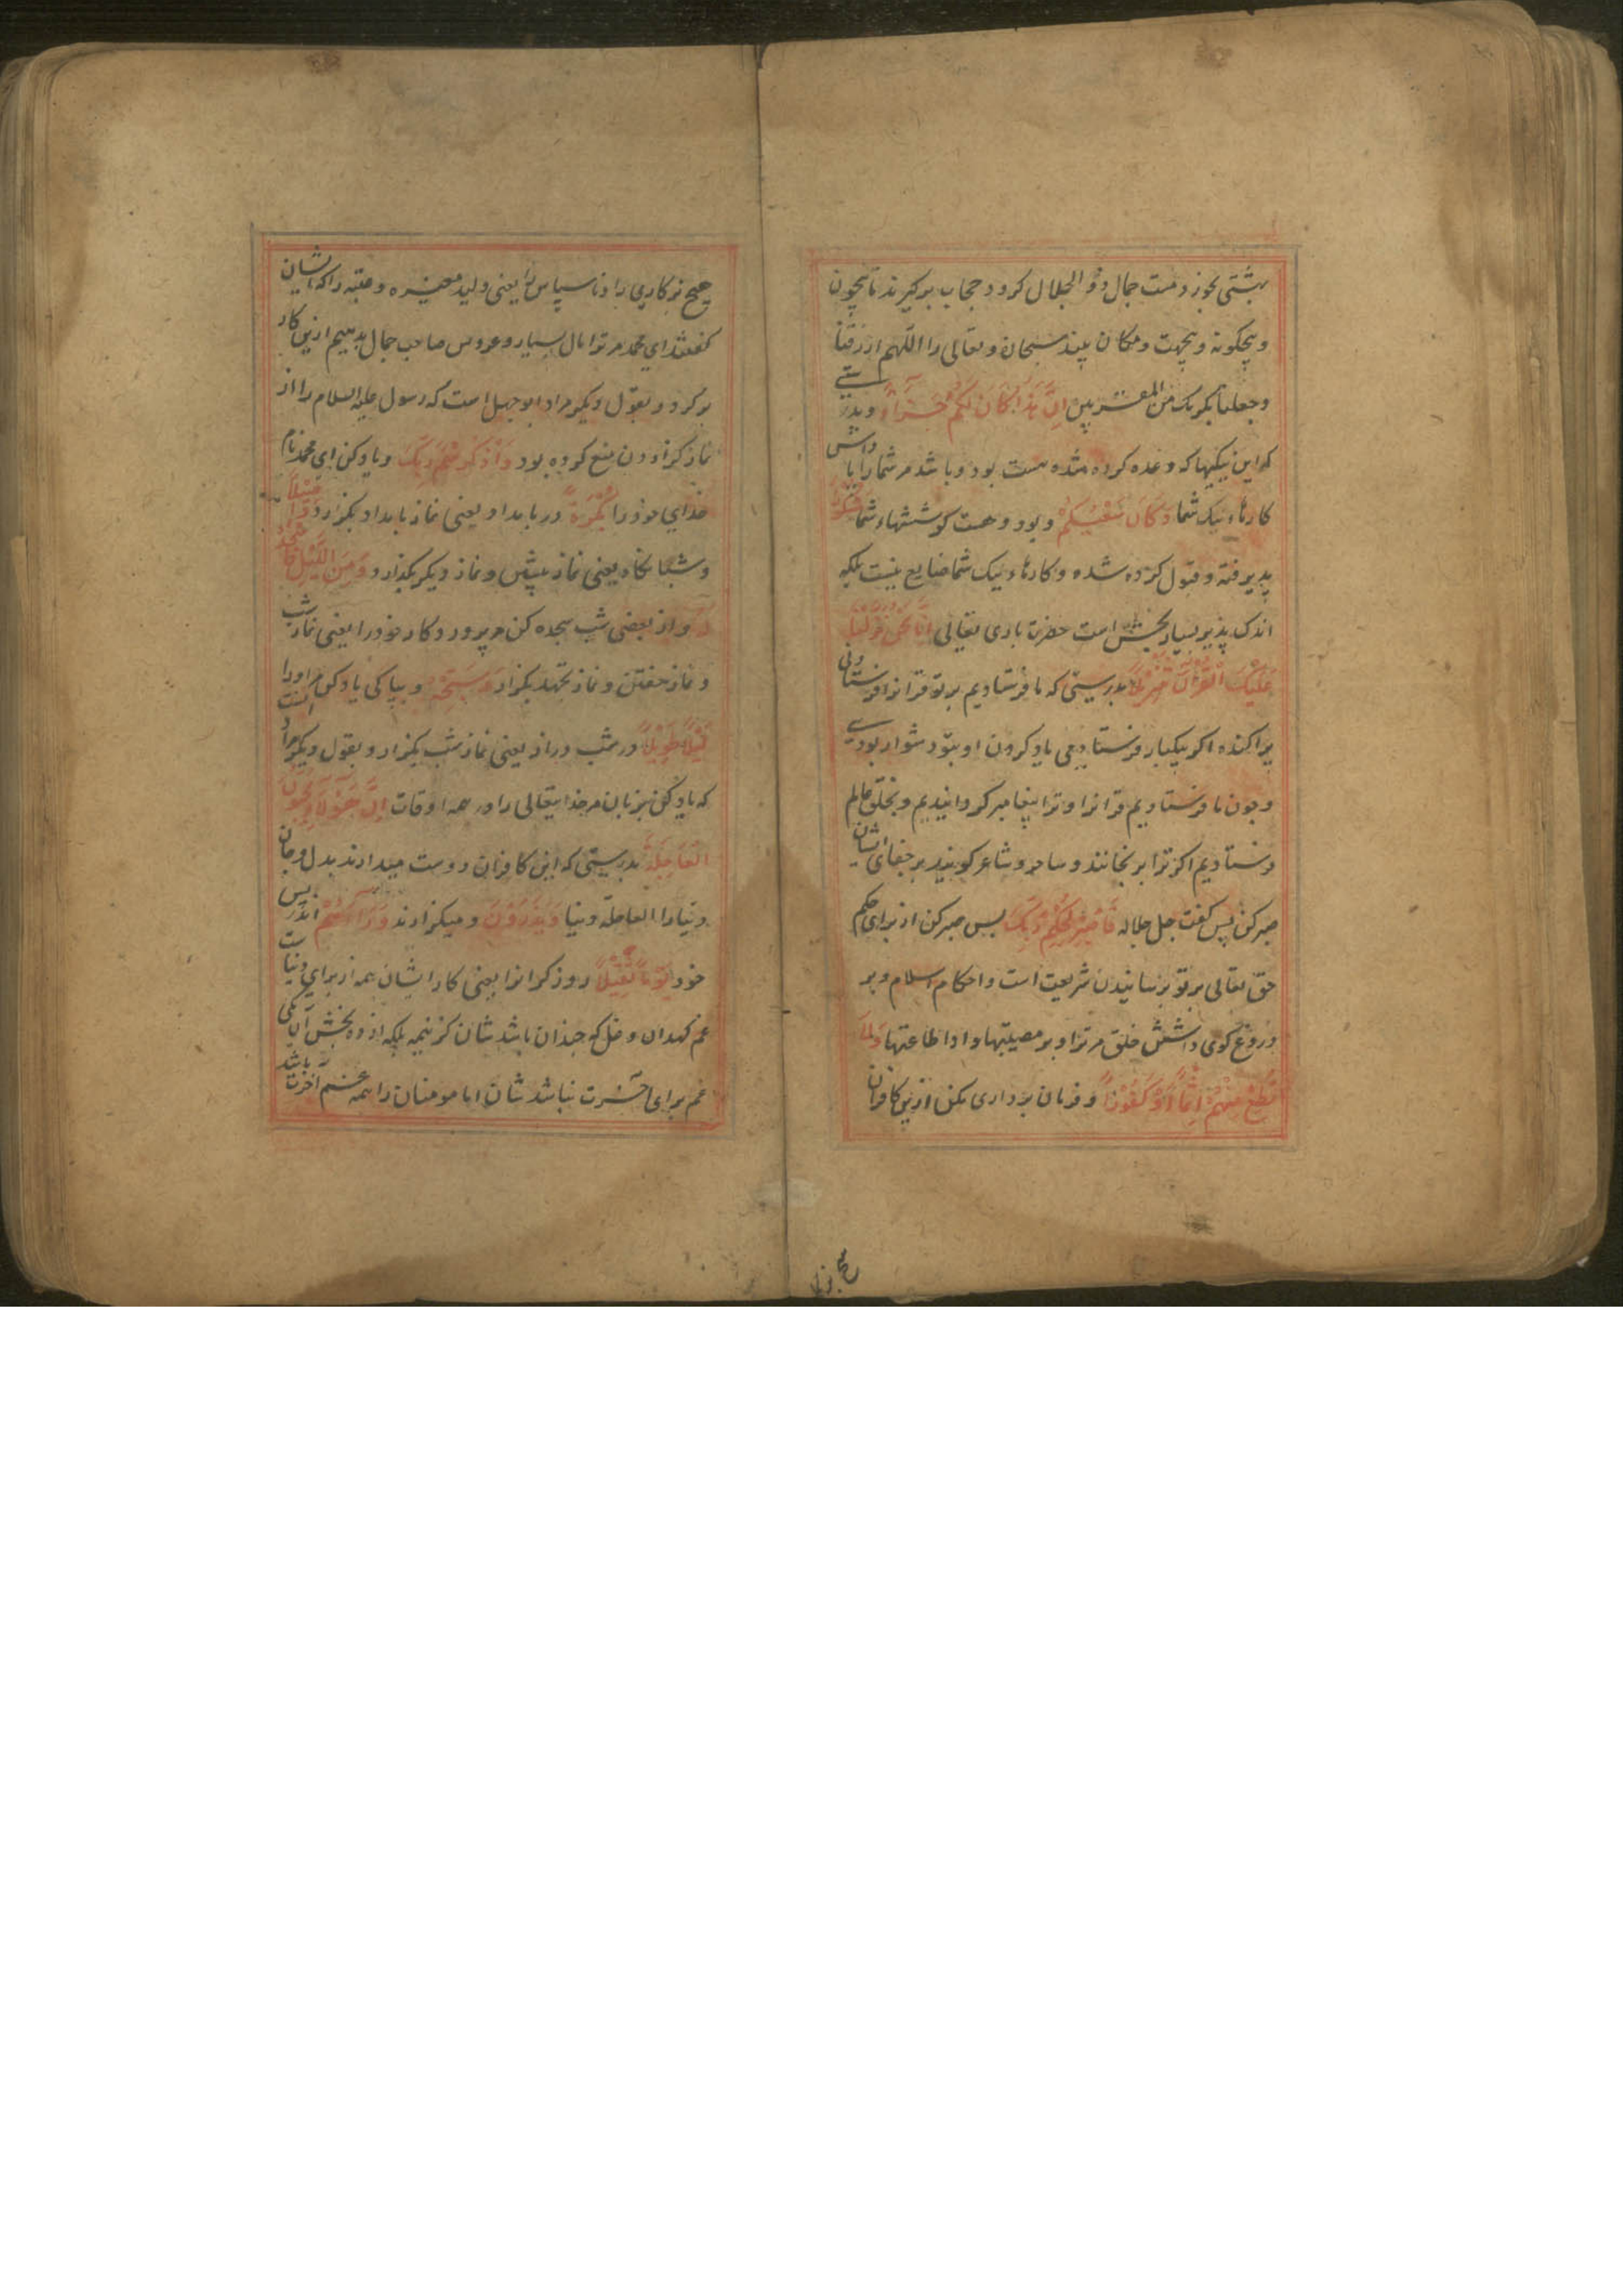 بهشتی بخورد مست جمال ذو الجلال کردد حجاب برکیرند تا بیچون
و بیچکونه و بیجهت و مکان بیند سبحانه و تعالی را اللهم ارزقنا
وجعلنا بکرمک من المقربین اِنَّ هٰذَا کَانَ لَکُمْ جَزَآءً و بدرستی
که این نیکیها که وعده کرده شده هست بود و باشد مر شما را پاداش
کارهاء نیک شما وَکَانَ سَعْیُکُمْ و بود و هست کوششهاء شما مَشْکُورًا
پذیرفته و قبول کرده شده و کارهاء نیک شما ضایع نیست بلکه
اندک پذیر بسیار بخش است حضرت باری تعالی اِنَّا نَحْنُ نَزَّلْنَا
عَلَیْکَ الْقُرْاٰنَ تَنْزِیْلًا بدرستی که ما فرستادیم بر تو قرانرا فرستادنی
پراکنده اکر بیکبار فرستادیمی یاد کردن او بتو دشوار بودے
و چون ما فرستادیم قرانرا و ترا پیغامبر کردانیدیم و بخلق عالم
فرستادیم اکر ترا برنجانند و ساحر و شاعر کویند بر جفای ایشان
صبر کن پس کفت جل جلاله فَاصْبِرْ لِحُکْمِ رَبِّکَ پس صبر کن از برای حکم
حق تعالی بر تو برسانیدن شریعت است و احکام اسلام و بر
دروغ کوی داشتن خلق مر ترا و بر مصیبتها و ادا طاعتها وَلَا
تُطِعْ مِنْهُمْ اٰثِمًا اَوْ کَفُوْرًا و فرمان برداری مکن ازین کافران
هیچ بزکاری را و ناسپاس را یعنی ولید مغیره و عتبه را که ایشان
کفتند ای محمد مر ترا مال بسیار و عروس صاحب جمال بدهیم ازین کار
برکرد و بقول دیکر مراد ابو جهل است که رسول علیه السلام را از
نماز کزاردن منع کرده بود وَاذْکُرِ اسْمَ رَبِّکَ و یاد کن ای محمد نام
خدای خود را بُکْرَةً در بامداد یعنی نماز بامداد بکزارد وَّاَصِیْلًا
و شبانکاه یعنی نماز پیشین و نماز دیکر بکذارد وَمِنَ اللَّیْلِ فَاسْجُدْ
لَهٗ و از بعضی شب سجده کن مر پروردکار خود را یعنی نماز شب
و نماز خفتن و نماز تهجد بکزار وَسَبِّحْهُ و بپاکی یاد کن مر اورا
لَیْلًا طَوِیْلًا در شب دراز یعنی نماز شب بکزار و بقول دیکر مراد انست
که یاد کن بزبان مر خدایتعالی را در همه اوقات اِنَّ هٰٓؤُلَآءِ یُحِبُّوْنَ
الْعَاجِلَةَ بدرستی که این کافران دوست میدارند بدل و جان
دنیا را العاجلة دنیا وَیَذَرُوْنَ و میکزارند وَرَآءَهُمْ اندر پس
خود یَوْمًا ثَقِیْلًا روز کرانرا یعنی کار ایشان همه از برای دنیاست
غم برای آخرت نباشد شان اما مومنان را همه غم آخرت باشد